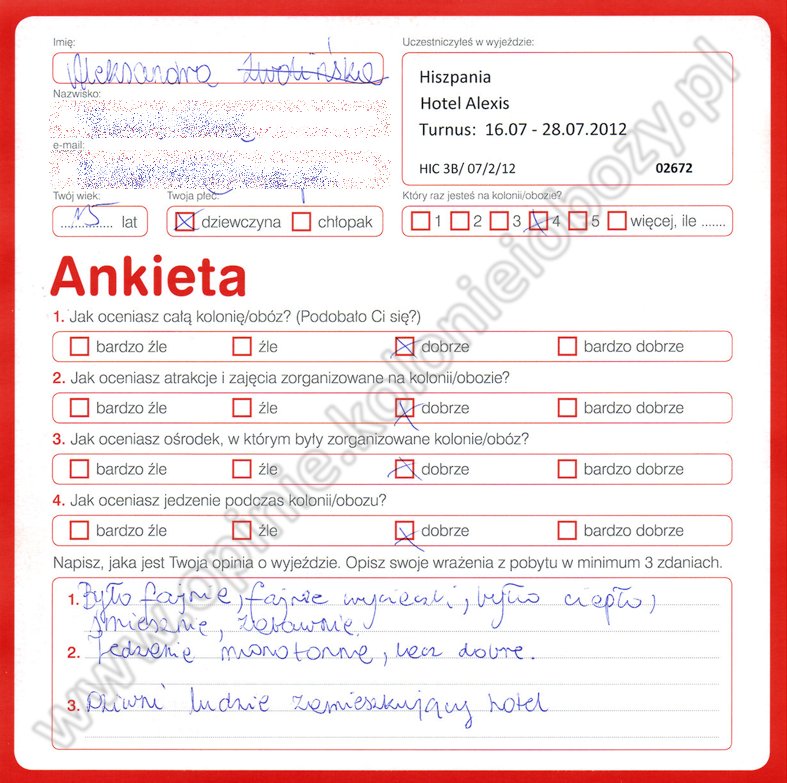 Imię:
Aleksandra
Nazwisko:
e-mail:
Twój wiek:
15 lat
Twoja płeć:
dziewczyna chłopak
Uczestniczyłeś w wyjeździe:
Hiszpania
Hotel Alexis
Turnus: 16.07 - 28.07.2012
HIC 3B/ 07/2/12 02672
Który raz jesteś na kolonii/obozie?
1 2 3 4 5 więcej, ile .......
Ankieta
1. Jak oceniasz całą kolonię/obóz? (Podobało Ci się?)
bardzo źle źle dobrze bardzo dobrze
2. Jak oceniasz atrakcje i zajęcia zorganizowane na kolonii/obozie?
bardzo źle źle dobrze bardzo dobrze
3. Jak oceniasz ośrodek, w którym były zorganizowane kolonie/obóz?
bardzo źle źle dobrze bardzo dobrze
4. Jak oceniasz jedzenie podczas kolonii/obozu?
bardzo źle źle dobrze bardzo dobrze
Napisz, jaka jest Twoja opinia o wyjeździe. Opisz swoje wrażenia z pobytu w minimum 3 zdaniach.
1. Było fajnie, fajnie wycieczki, było ciepło,
śmiesznie, zabawnie.
2. Jedzenie monotonne, lecz dobre.
3. Dziwni ludzie zamieszkujący hotel
www.opinie.kolonieiobozy.pl